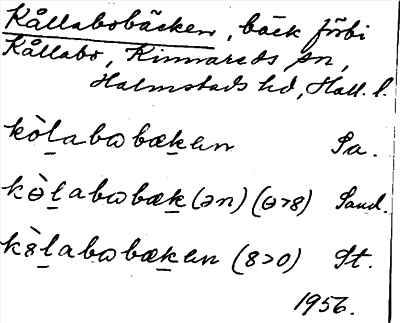 Kållabobäcken, bäck förbi
Kållabo, Kinnareds sn,
Halmstads hd, Hall. l.
kòḻabωbæḵən Sa.
kɵ̀ḻabωbæḵ(ən) (ɵ>8) Sand.
k8̀ḻabωbæḵən (8>o) St.
1956.